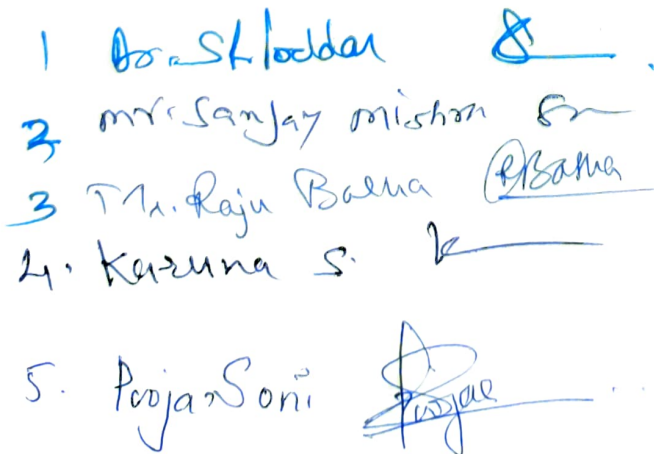 1 Dr. SK Poddar
2 mr. Sanjay mishra
3 Mr. Raju Batha @Batha
4. Karuna S. K
5. Pooja Soni Pooja